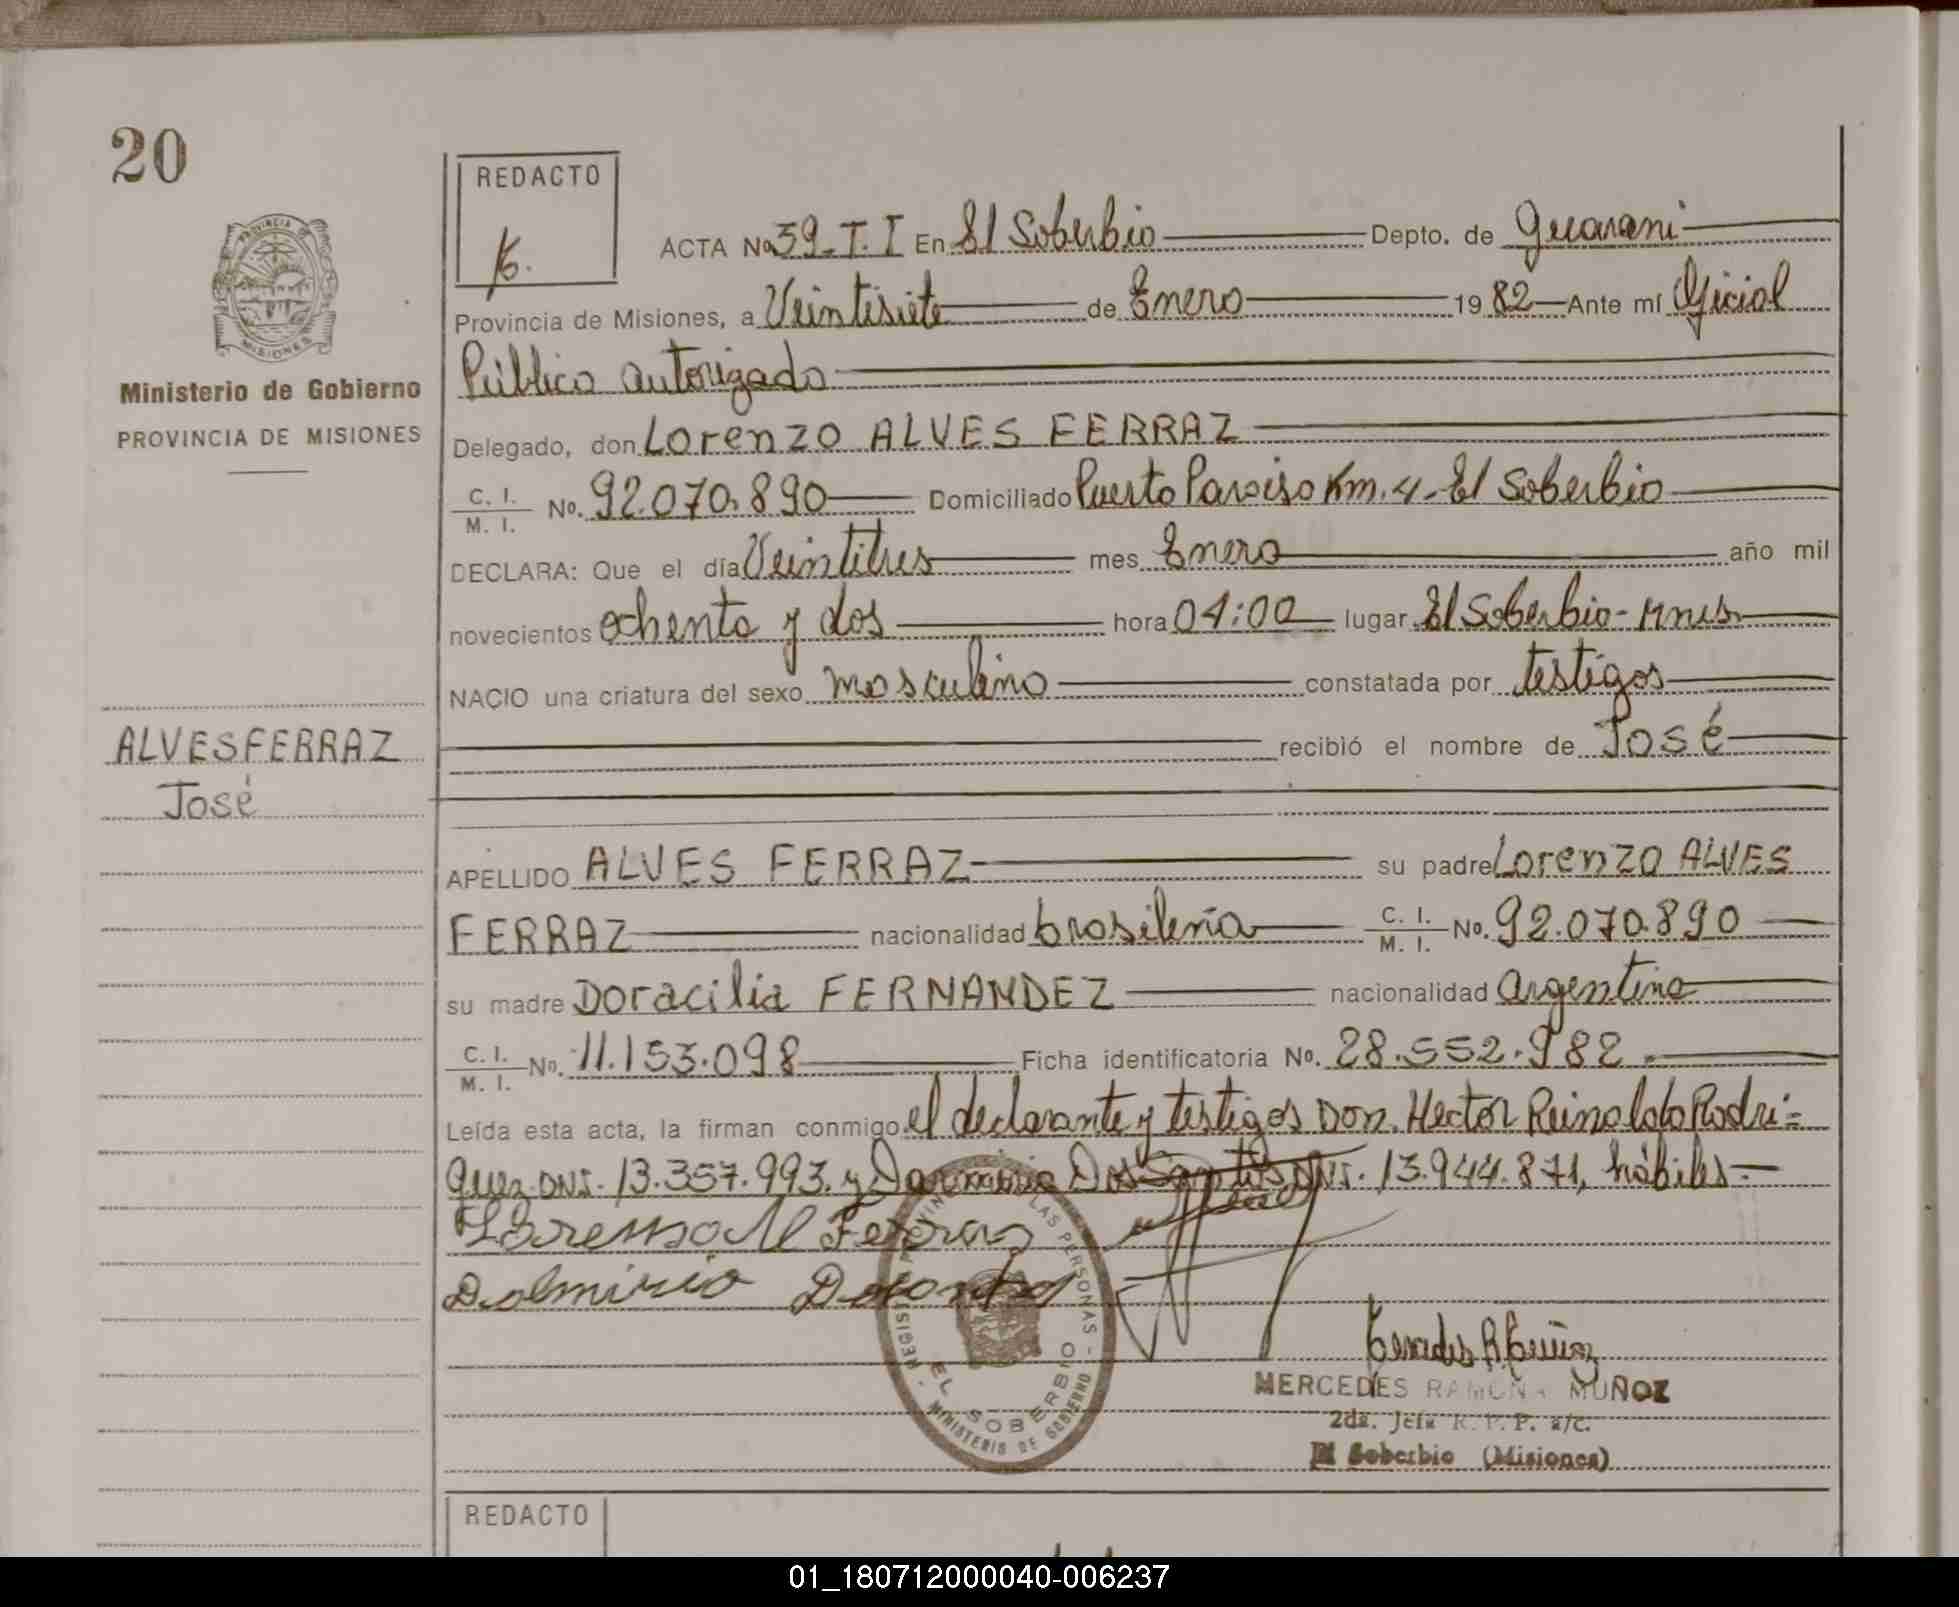 20
REDACTO
ACTA No 39-T.I En El Soberbio Depto. de Guarani
Provincia de Misiones, a Veintisiete de Enero 1982 Ante mí Oficial
Público autorizado
Ministerio de Gobierno
PROVINCIA DE MISIONES
Delegado, don Lorenzo ALVES FERRAZ
C. I. M. I. No. 92.070.890 Domiciliado Puerto Paraiso Km. 4 - El Soberbio
DECLARA: Que el día Veintitres mes Enero año mil
novecientos ochenta y dos hora 04:00 lugar El Soberbio - Mnes
NACIO una criatura del sexo masculino constatada por testigos
ALVES FERRAZ
José
recibió el nombre de José
APELLIDO ALVES FERRAZ su padre Lorenzo ALVES
FERRAZ nacionalidad brasileña C. I. M. I. No. 92.070.890
su madre Doracilia FERNANDEZ nacionalidad Argentina
C. I. M. I. No. 11.153.098 Ficha identificatoria No. 28.552.982
Leída esta acta, la firman conmigo el declarante y testigos Don. Hector Reinaldo Rodri=
guez DNI. 13.357.993. y Dos Santos DNI. 13.944.871, hábiles
Ferraz
MERCEDES RAMONA MUÑOZ
2da. Jefa R. P. P. a/c.
El Soberbio (Misiones)
LAS PERSONAS - MINISTERIO DE GOBIERNO
EL SOBERBIO
REDACTO
01_180712000040-006237